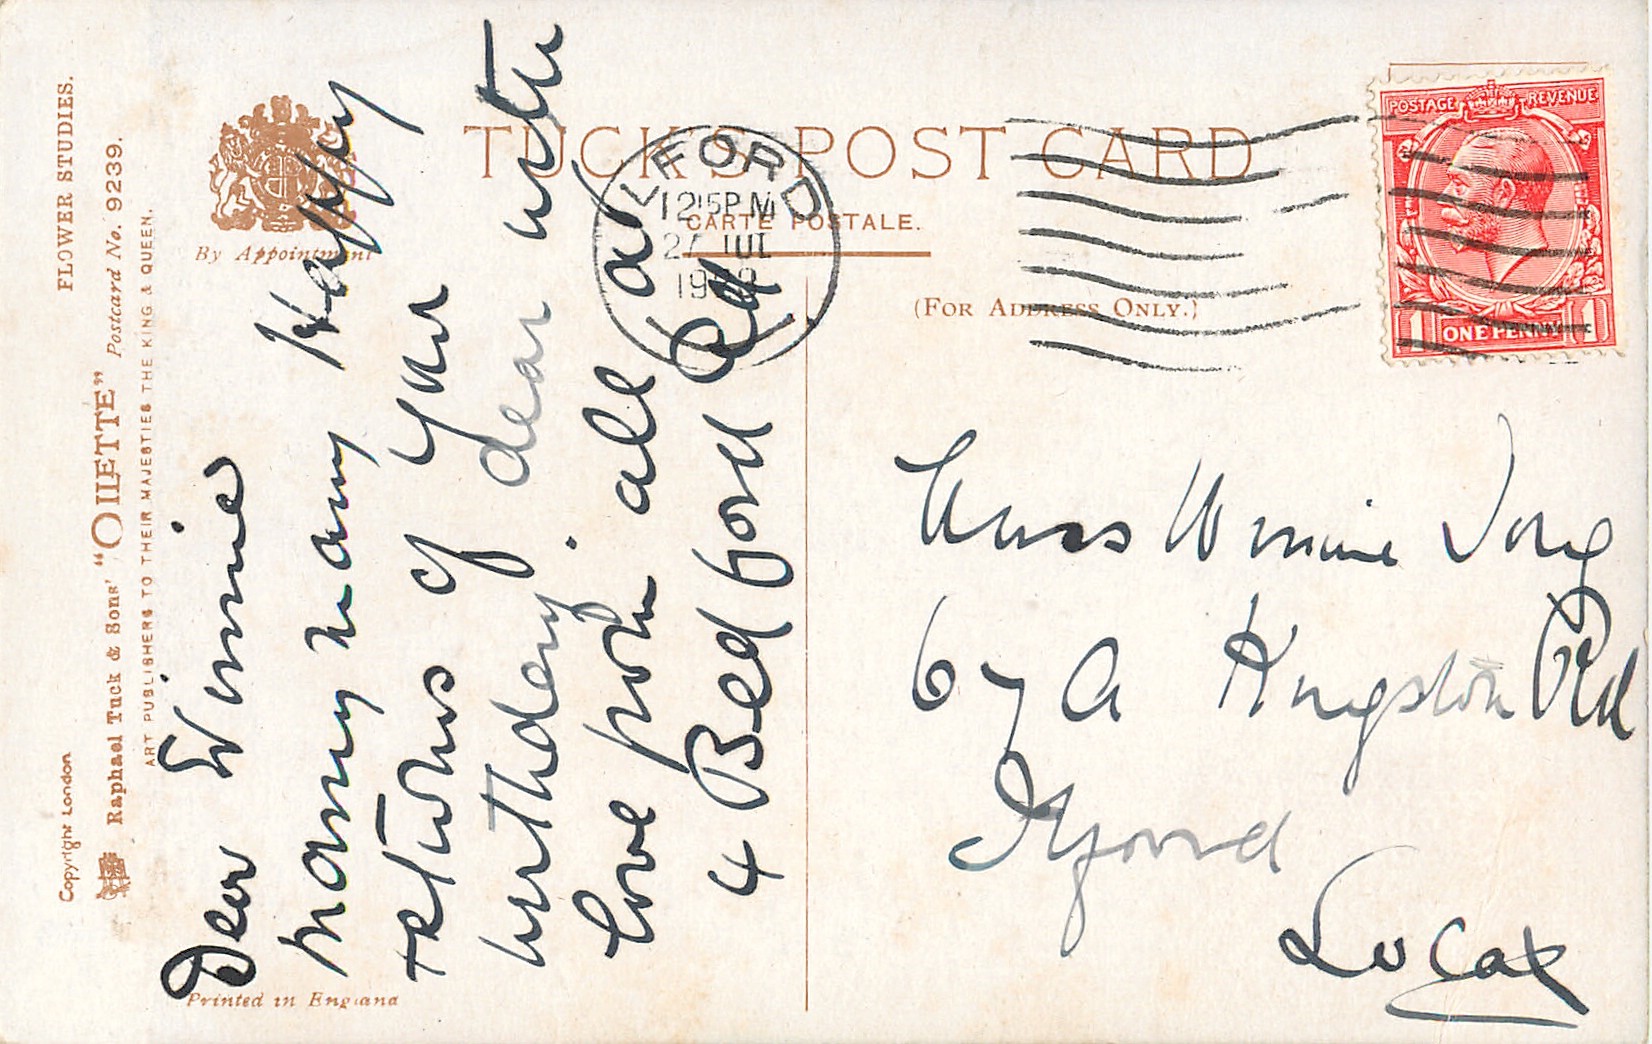 FLOWER STUDIES.
Copyright London
Raphael Tuck & Sons' "OILETTE" Postcard No. 9239.
ART PUBLISHERS TO THEIR MAJESTIES THE KING & QUEEN.
By Appointment
TUCK'S POST CARD
CARTE POSTALE.
(FOR ADDRESS ONLY.)
ILFORD
12 15 PM
JUL
POSTAGE REVENUE
1 ONE PENNY 1
Dear Winnie
Many many Happy
returns of your
birthday dear with
love from all at
4 Bedford Rd
Miss Winnie
67A Kingston Rd
Ilford
Essex
Printed in England